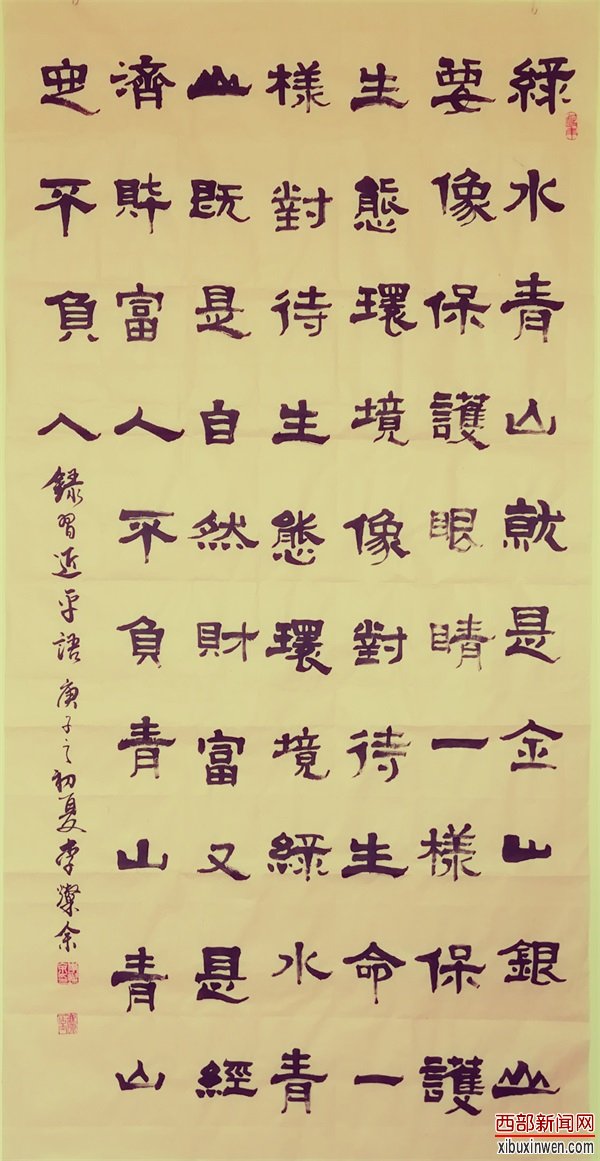 綠水青山就是金山銀山
要像保護眼睛一樣保護
生態環境像對待生命一
樣對待生態環境綠水青
山既是自然財富又是經
濟財富人不負青山青山
定不負人
録習近平語 庚子之初夏李燦余
西部新闻网
xibuxinwen.com